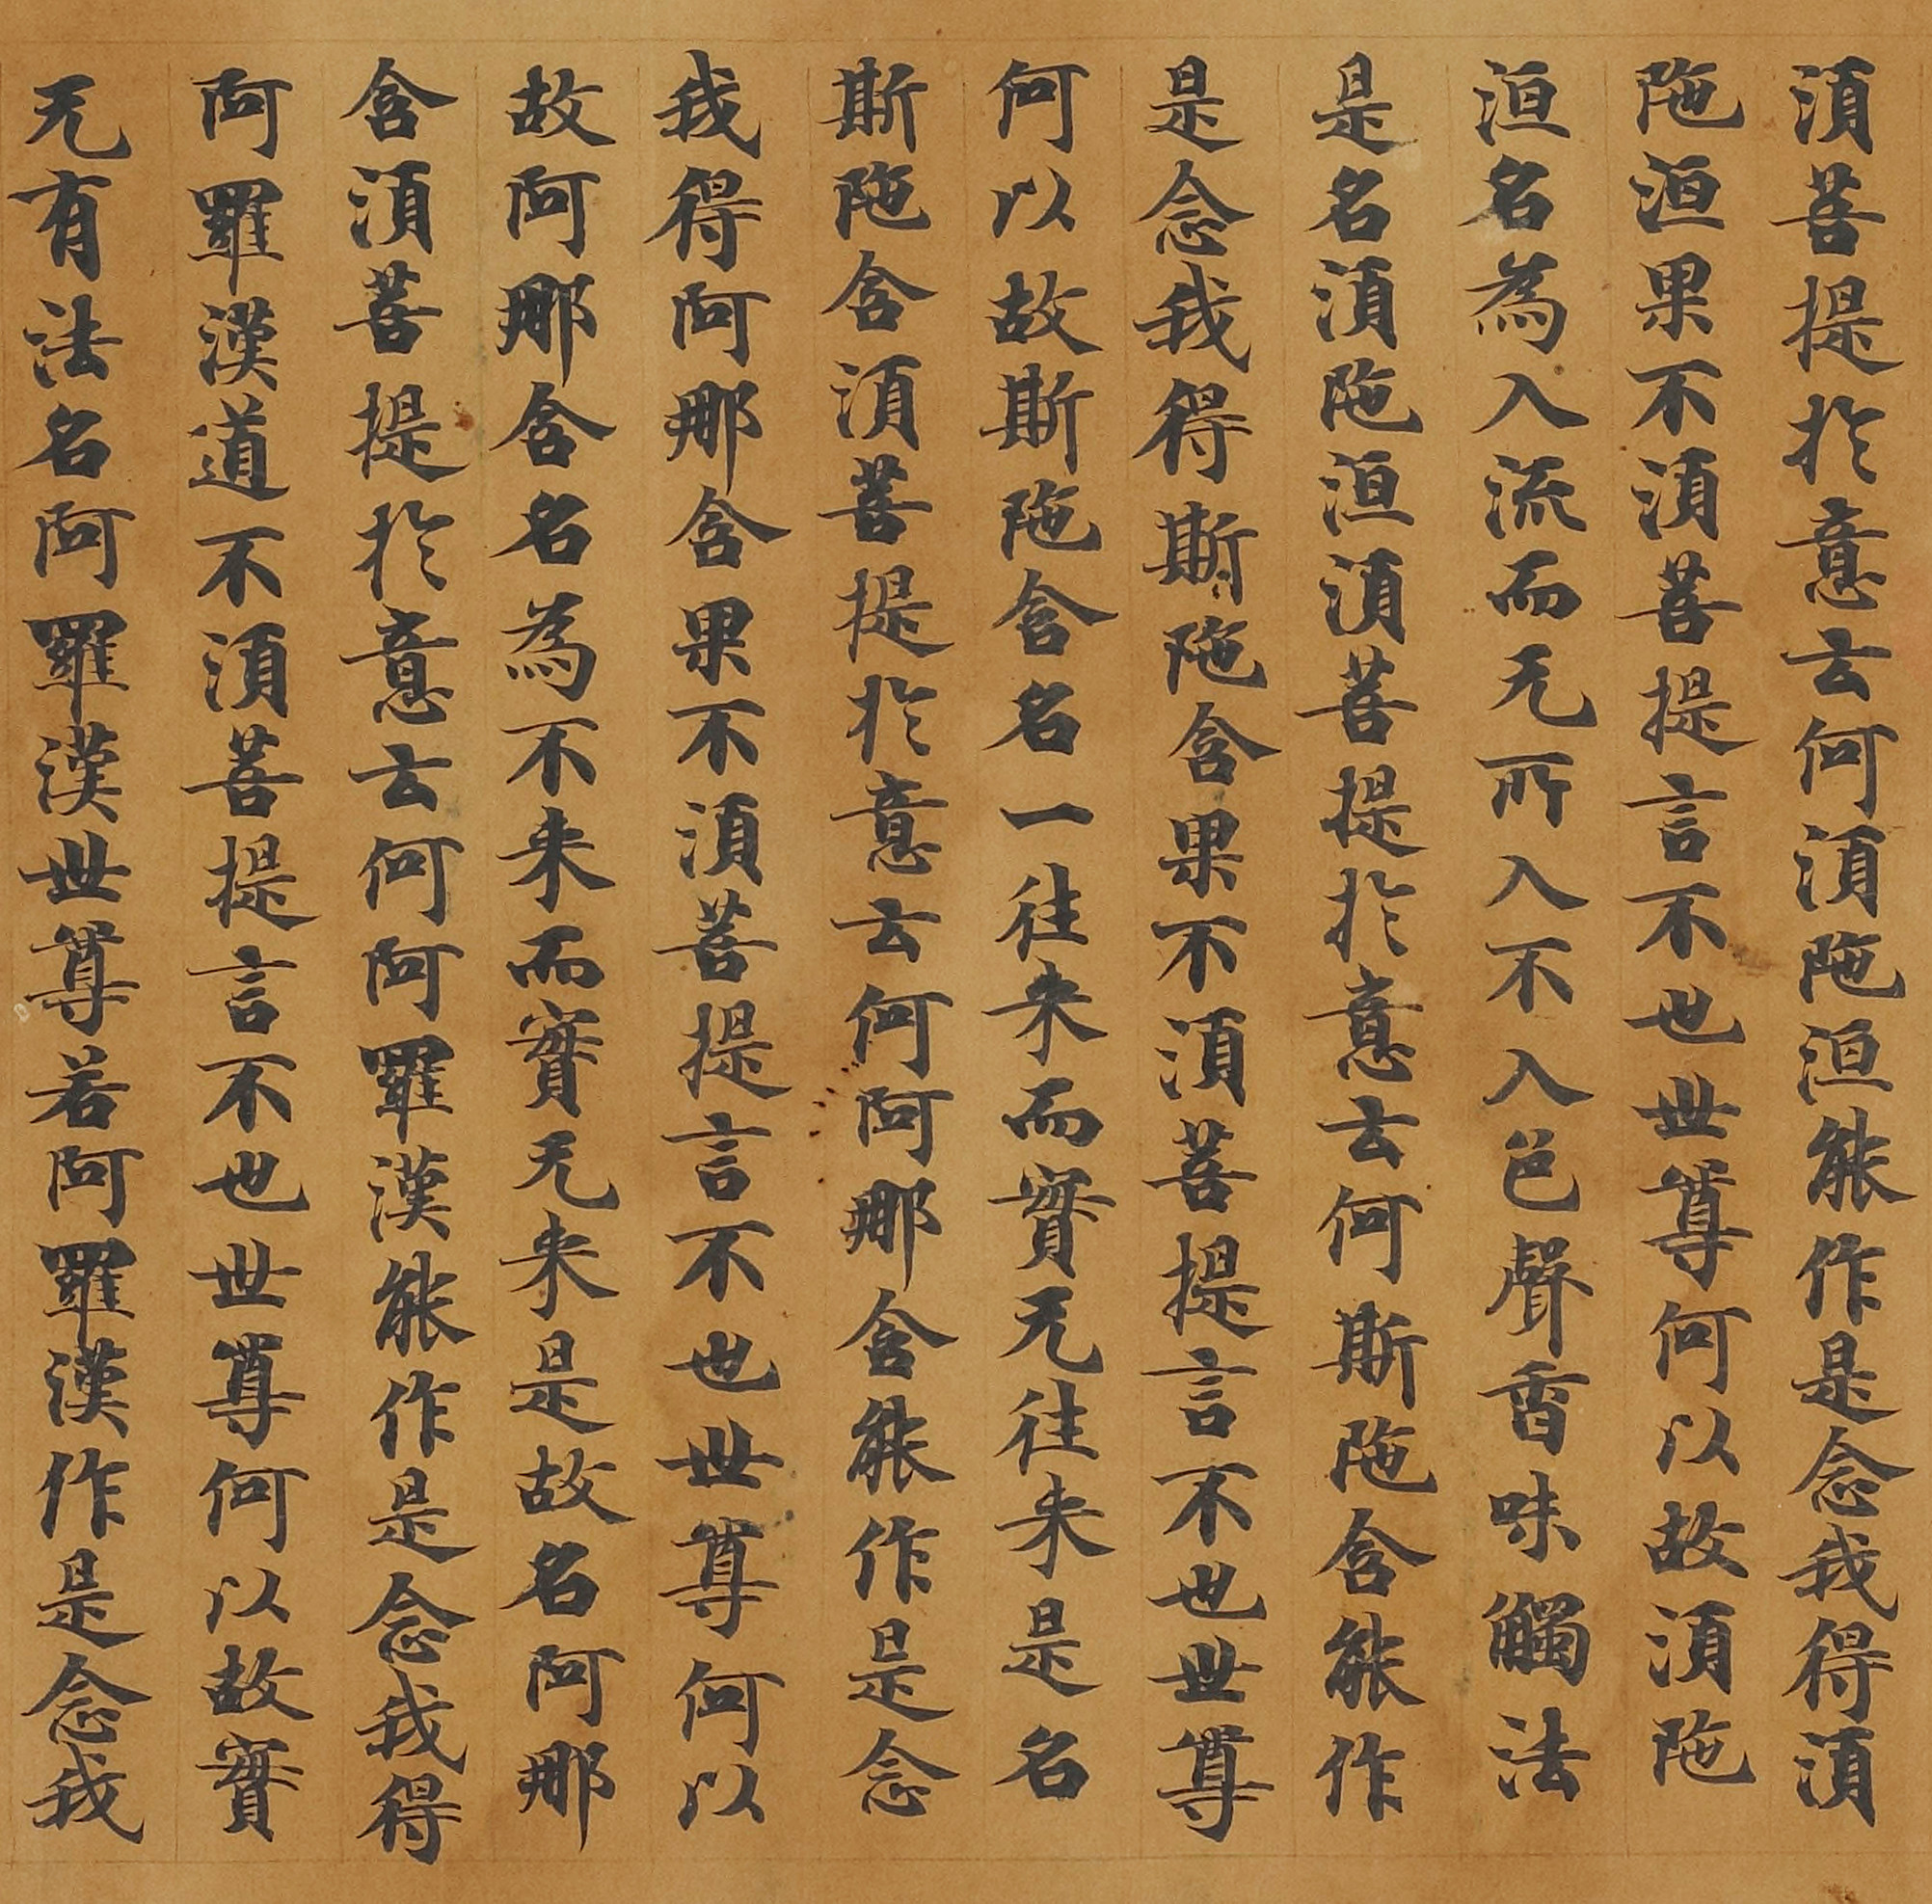 須菩提於意云何須陁洹能作是念我得須
陁洹果不須菩提言不也世尊何以故須陁
洹名為入流而无所入不入色聲香味觸法
是名須陁洹須菩提於意云何斯陁含能作
是念我得斯陁含果不須菩提言不也世尊
何以故斯陁含名一往来而實无往来是名
斯陁含須菩提於意云何阿那含能作是念
我得阿那含果不須菩提言不也世尊何以
故阿那含名為不来而實无来是故名阿那
含須菩提於意云何阿羅漢能作是念我得
阿羅漢道不須菩提言不也世尊何以故實
无有法名阿羅漢世尊若阿羅漢作是念我